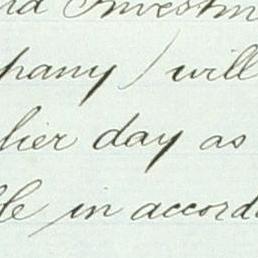 nd Investm
pany) will
lier day as
le in accord